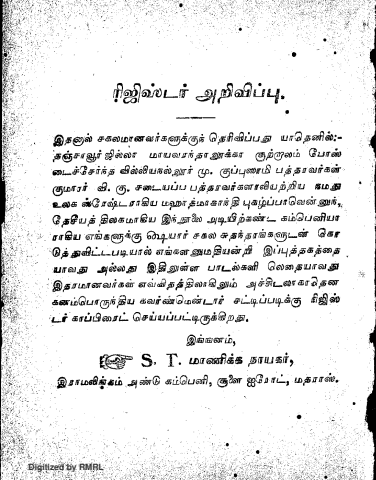 ரிஜிஸ்டர் அறிவிப்பு.
இதனால் சகலமானவர்களுக்குந் தெரிவிப்பது யாதெனில்:-
தஞ்சாவூர் ஜில்லா மாயவரந்தாலூக்கா குற்றாலம் போஸ்
டைச்சேர்ந்த வில்லியநல்லூர் மு. குப்புஸாமி பத்தரவர்கள்
குமாரர் வி. கு. சடையப்ப பத்தரவர்களாலியற்றிய நமது
உலக ஸ்ரேஷ்டராகிய மஹாத்மாகாந்தி புகழ்ப்பாவென்னுந்,
தேசியத் திலகமாகிய இந்நூலை அடியிற்கண்ட கம்பெனியா
ராகிய எங்களுக்கு ஒடியார் சகல சுதந்தரங்களுடன் கொ
டுத்துவிட்டபடியால் எங்களனுமதியின்றி இப்புத்தகத்தை
யாவது அல்லது இதிலுள்ள பாடல்களி லெதையாவது
இதரமானவர்கள் எவ்விதத்திலாகிலும் அச்சிடலாகாதென
கனம்பொருந்திய கவர்ண்மெண்டார் சட்டப்படிக்கு ரிஜிஸ்
டர் காப்பிரைட் செய்யப்பட்டிருக்கிறது.
இங்ஙனம்,
S. T. மாணிக்க நாயகர்,
இராமலிங்கம் அண்டு கம்பெனி, சூளை ஐரோட், மதராஸ்.
Digitized by RMRL